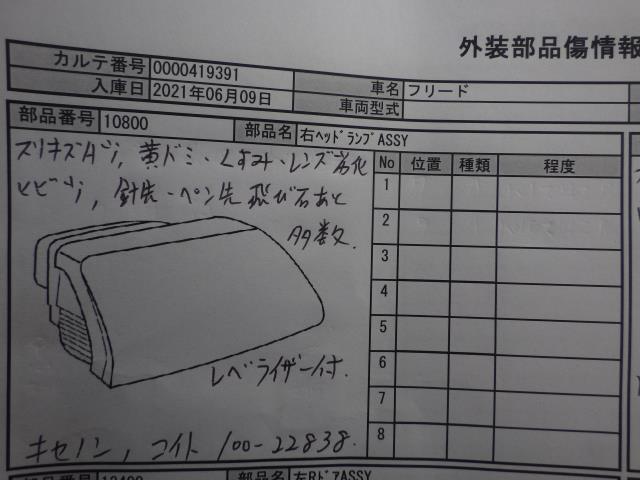 外装部品傷情報
カルテ番号 0000419391 車名 フリード
入庫日 2021年06月09日 車両型式
部品番号 10800 部品名 右ヘッドランプASSY
スリキズAリ, 黄ドミ・くすみ・レンズ劣化
ヒビ小, 針先・ペン先 飛び石あと
多数.
No 位置 種類 程度
1
2
3
4
5
6
7
8
レベライザー付.
キセノン, コイト 100-22838.
部品番号 部品名 左RドアASSY